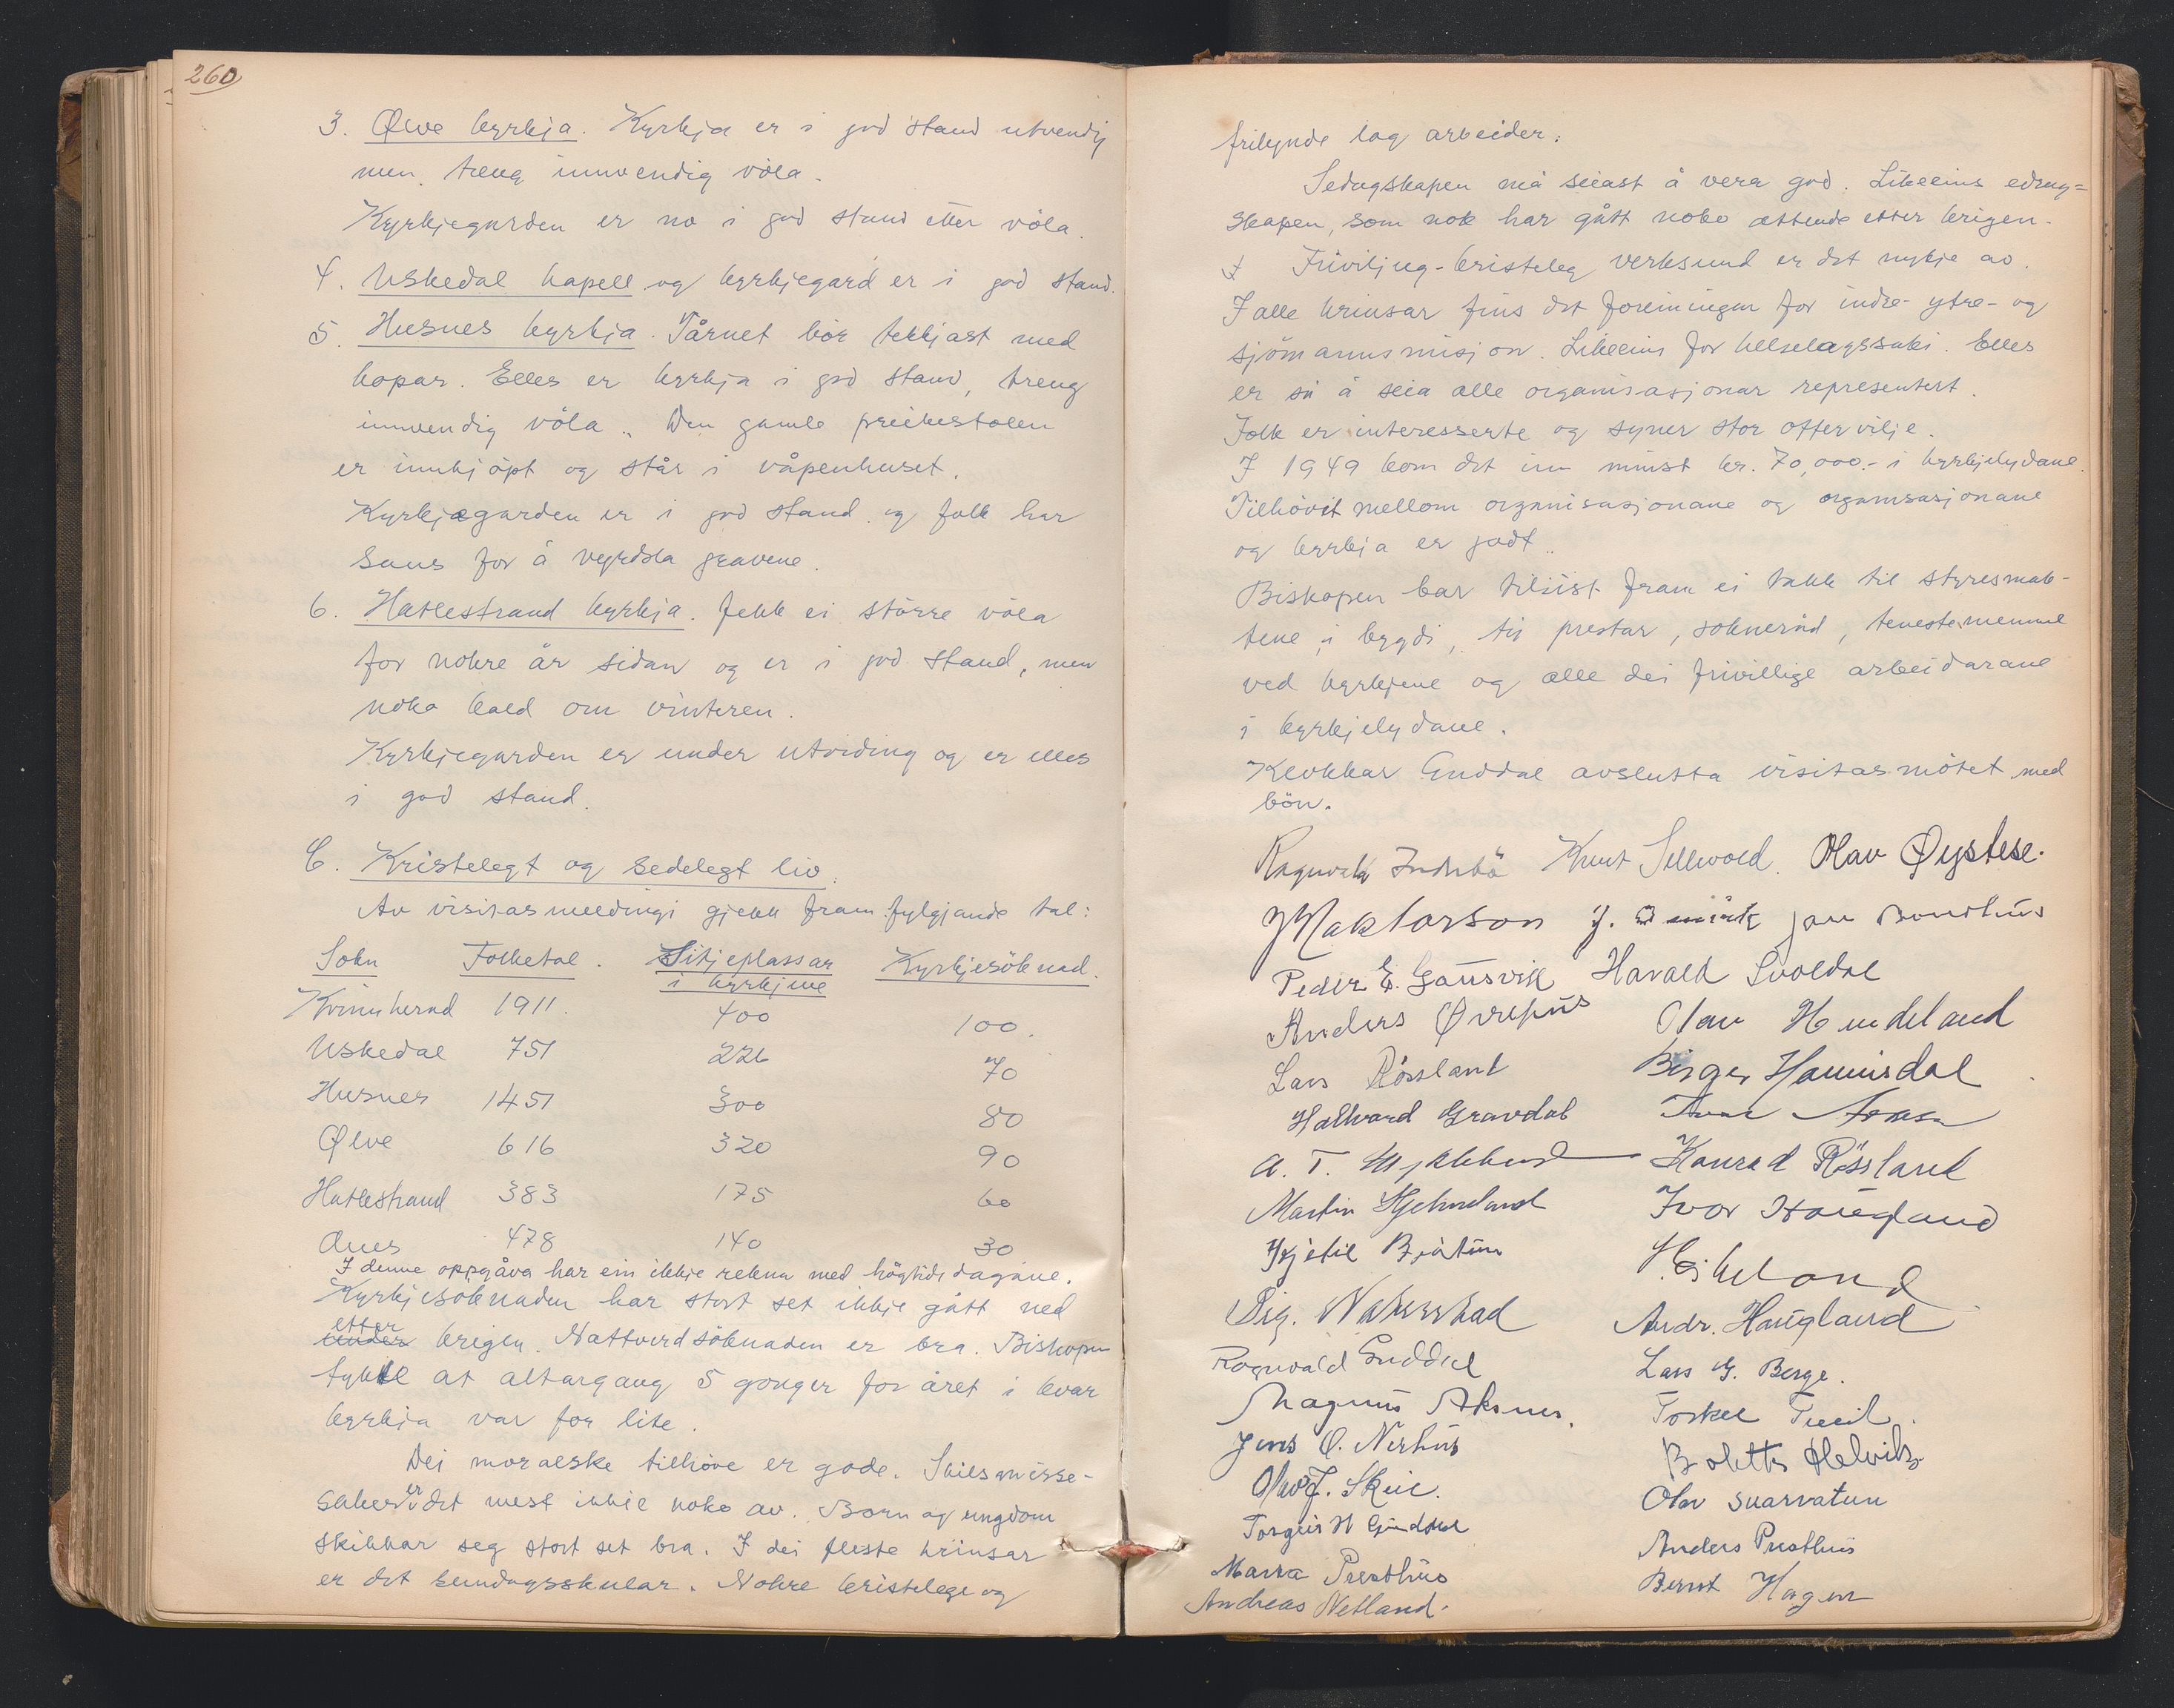 260
3. Ølve kyrkja. Kyrkja er i god stand utvendig
men treng innvendig völa.
Kyrkjegarden er no i god stand etter völa.
4. Uskedal kapell og kyrkjegard er i god stand.
5. Husnes kyrkja. Tårnet bör tekkjast med
kopar. Elles er kyrkja i god stand, treng
innvendig völa. Den gamle preikestolen
er innkjöpt og står i våpenhuset.
Kyrkjegarden er i god stand og folk har
sans for å vyrdsla gravene.
6. Hatlestrand kyrkja. Fekk ei större völa
for nokre år sidan og er i god stand, men
noko kald om vinteren.
Kyrkjegarden er under utviding og er elles
i god stand.
C. Kristelegt og sedelegt liv.
Av visitasmeldingi gjekk fram fylgjande tal:
Sokn Folketal. Sitjeplassar i kyrkjene Kyrkjesöknad.
Kvinnherad 1911. 400 100.
Uskedal 751 226 70
Husnes 1451 300 80
Ølve 616 320 90
Hatlestrand 383 175 60
Ånes 478 140 30
I denne oppgåva har ein ikkje rekna med högtidsdagane.
Kyrkjesöknaden har stort set ikkje gått ned
etter
under krigen. Nattverdsöknaden er bra. Biskopen
tykkte at altargang 5 gonger for året i kvar
kyrkja var for lite.
Dei moralske tilhöve er gode. Skilsmisse-
saker er det mest ikkje noko av. Born og ungdom
skikkar seg stort set bra. I dei fleste krinsar
er det sundagsskular. Nokre kristelege og
frilynde lag arbeider.
Sedugskapen må seiast å vera god. Likeeins edrug=
skapen, som nok har gått noko attende etter krigen.
Friviljug-kristeleg verksemd er det mykje av.
I alle krinsar fins det foreiningar for indre- ytre- og
sjömannsmisjon. Likeeins for helselagssaki. Elles
er så å seia alle organisasjonar representert.
Folk er interesserte og syner stor offervilje.
I 1949 kom det inn minst kr. 70,000.- i kyrkjelydane.
Tilhövet mellom organisasjonane og organisasjonane
og kyrkja er godt.
Biskopen bar tilsist fram ei takk til styresmak-
tene i bygdi, til prestar, sokneråd, tenestemennene
ved kyrkjene og alle dei frivillige arbeidarane
i kyrkjelydane.
Klokkar Guddal avslutta visitasmötet med
bön.
Ragnvald Indrebö Knut Sellevold. Olav Øystese.
Peder E. Gausvik Harald Svoldal
Anders Olav Hendeland
Lars Rössland Birger Hammersdal
Halvard Gravdal
A. T. Konrad Rössland
Martin Ivar Haugland
Kjetil
Sig. Andr. Haugland
Ragnvald Guddal Lars G. Berge.
Magnus Aksnes. Torkel
Jens O. Nerhus
Olav J. Skeie. Olav Svarvatun
Torgeir H Guddal Anders Presthus
Marta Presthus Bernt Hagen
Andreas Netland.